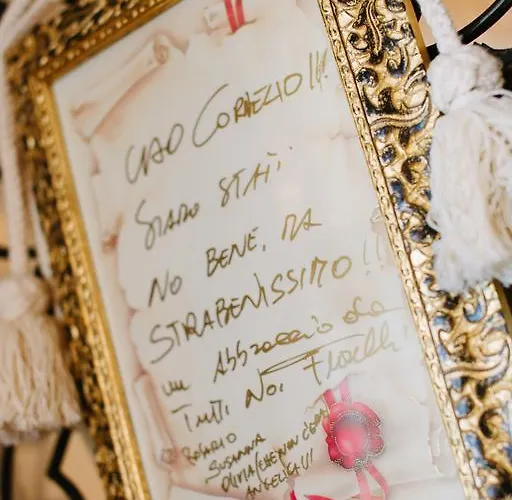 CIAO CORNEZIO!!!
SIAMO STATI
NO BENE, MA
STRABENISSIMO!!
un Abbraccio da
Tutti Noi Fiorelli
ROSARIO
SUSANNA
OLIVIA
ANGELICA